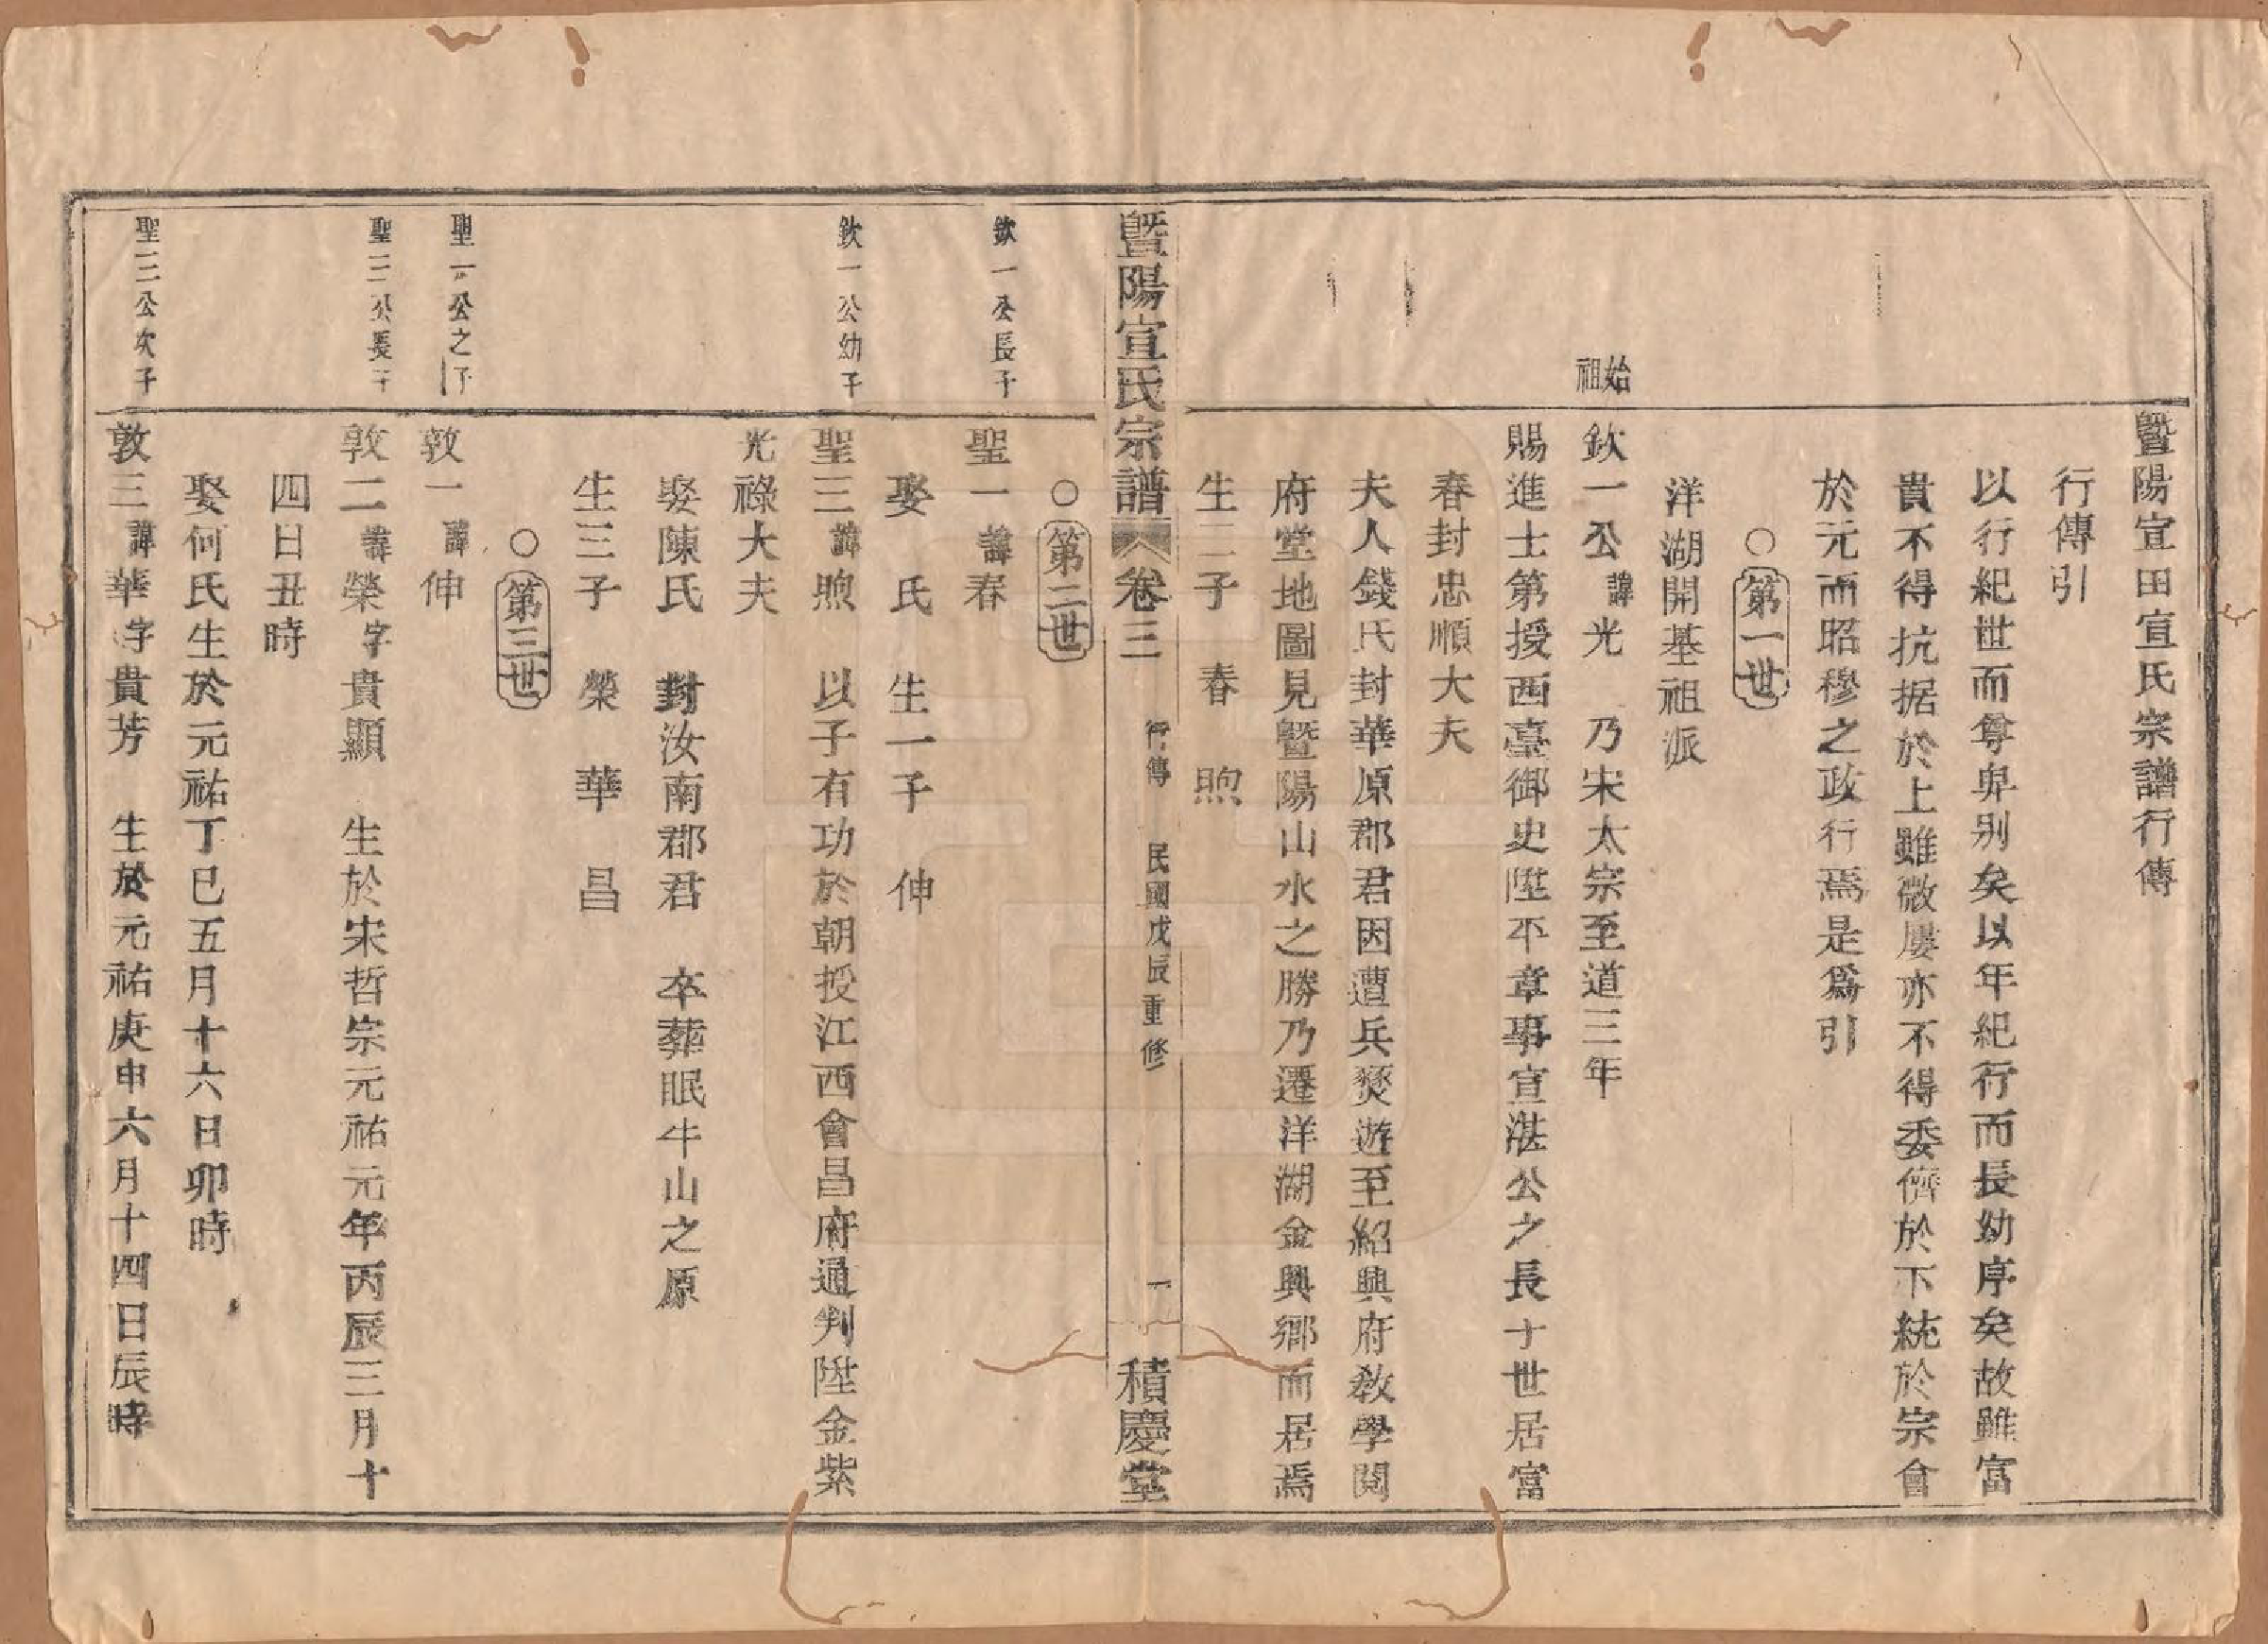 暨陽宣田宣氏宗譜行傳
行傳引
以行紀世而尊卑別矣以年紀行而長幼序矣故雖富
貴不得抗据於上雖微屢亦不得委儕於下統於宗會
於元而昭穆之政行焉是爲引
○第一世
洋湖開基祖派
始祖
欽一公諱光　乃宋太宗至道三年
賜進士第授西臺御史陞平章事宣湛公之長十世居富
春封忠順大夫
夫人錢氏封華原郡君因遭兵燹遊至紹興府教學閱
府堂地圖見暨陽山水之勝乃遷洋湖金興鄉而居焉
生二子　春　煦
暨陽宣氏宗譜　卷三　行傳　民國戊辰重修　一　積慶堂
○第二世
欽一公長子
聖一諱春
娶　氏　生一子　伸
欽一公幼子
聖三諱煦　以子有功於朝授江西會昌府通判陞金紫
光祿大夫
娶陳氏　封汝南郡君　卒葬眠牛山之原
生三子　榮　華　昌
○第三世
聖一公之子
敦一諱伸
聖三公長子
敦二諱榮字貴顯　生於宋哲宗元祐元年丙辰三月十
四日丑時
娶何氏生於元祐丁巳五月十六日卯時
聖三公次子
敦三諱華字貴芳　生於元祐庚申六月十四日辰時